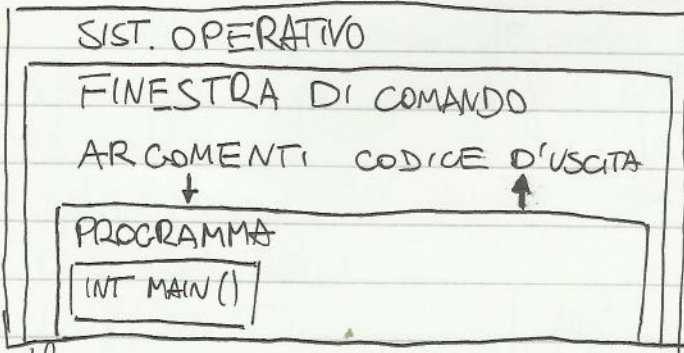 SIST. OPERATIVO
FINESTRA DI COMANDO
ARGOMENTI CODICE D'USCITA
PROGRAMMA
INT MAIN()